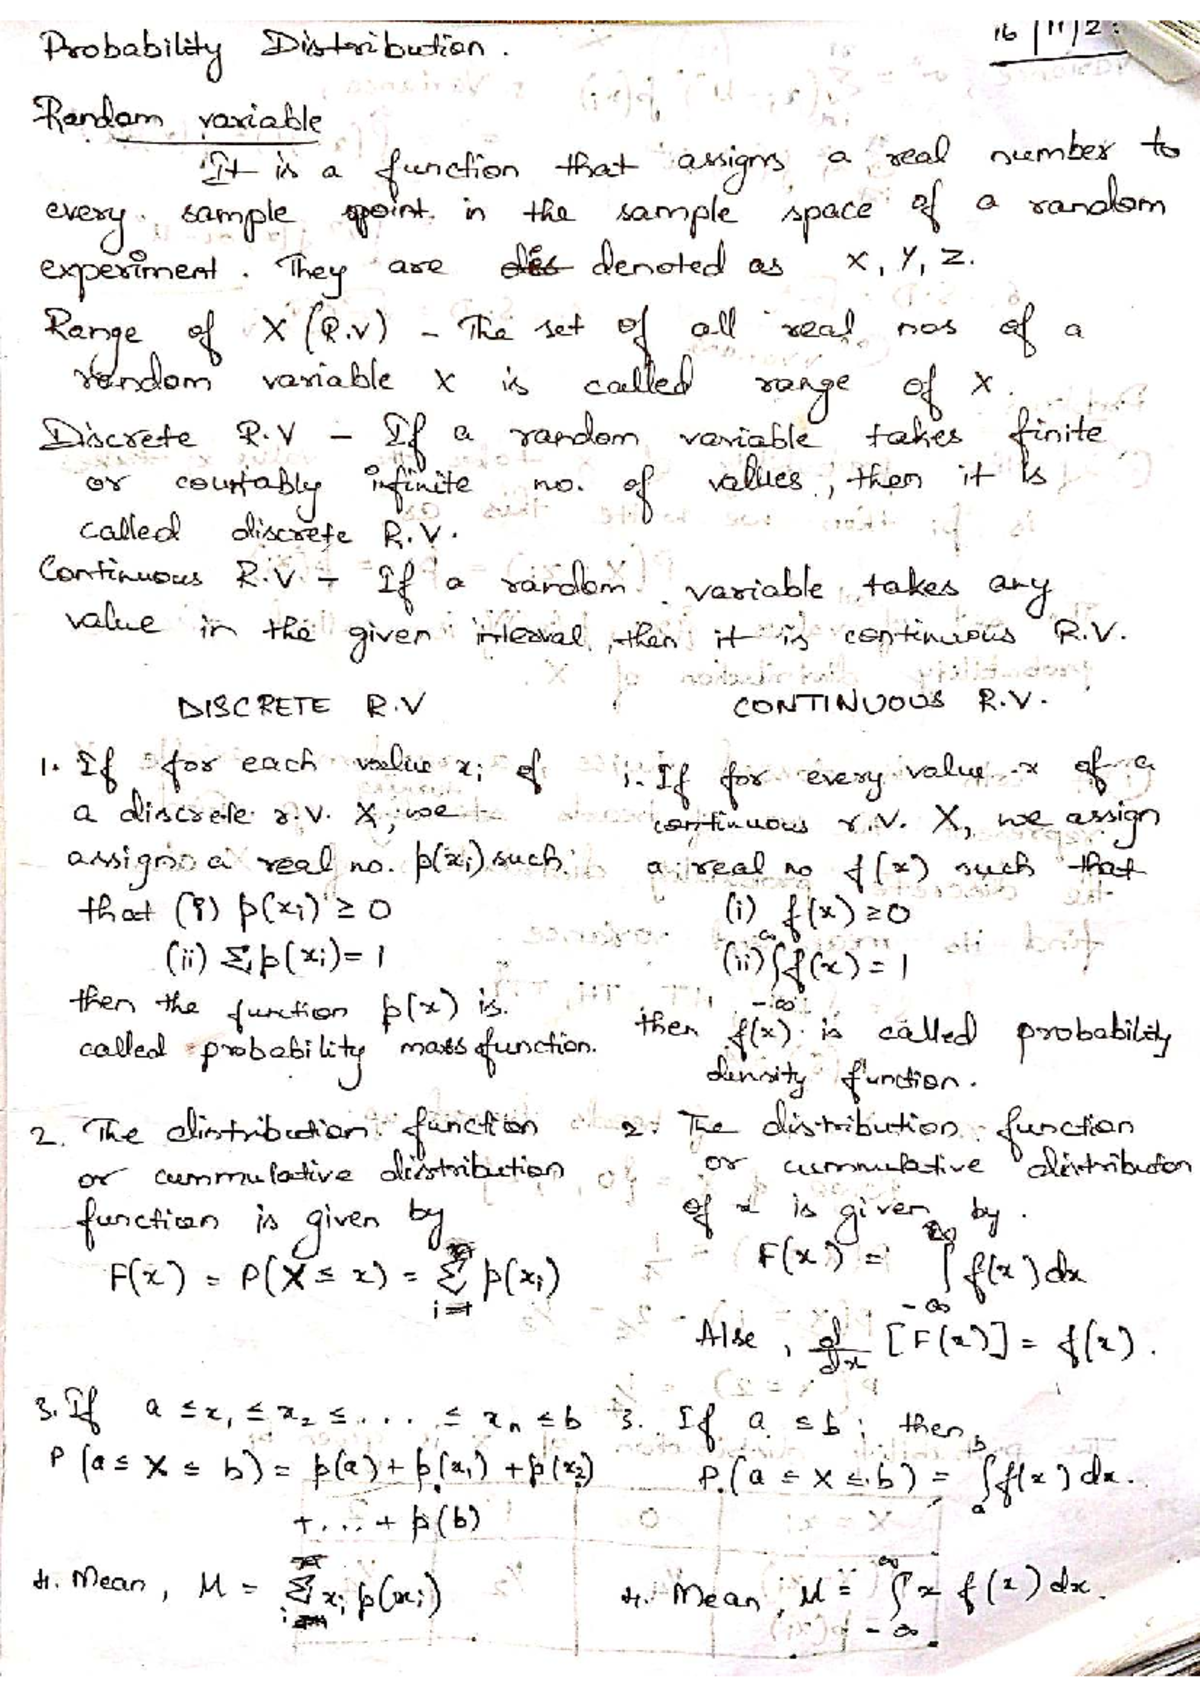 Probability Distribution.
16/11/2
Random variable
It is a function that assigns a real number to
every sample point in the sample space of a random
experiment. They are denoted as X, Y, Z.
Range of X (R.V) - The set of all real nos of a
random variable X is called range of X.
Discrete R.V - If a random variable takes finite
or countably infinite no. of values, then it is
called discrete R.V.
Continuous R.V - If a random variable takes any
value in the given interval, then it is continuous R.V.
DISCRETE R.V
1. If for each value xi of
a discrete r.v. X, we
assigns a real no. p(xi) such
that (i) p(xi) ≥ 0
(ii) Σ p(xi) = 1
then the function p(x) is
called probability mass function.
2. The distribution function
or cummulative distribution
function is given by
F(x) = P(X ≤ x) = Σ p(xi)
3. If a ≤ x1 ≤ x2 ≤ ... ≤ xn ≤ b
P(a ≤ X ≤ b) = p(a) + p(x1) + p(x2)
+ ... + p(b)
4. Mean, μ = Σ xi p(xi)
CONTINUOUS R.V.
1. If for every value x of a
continuous r.v. X, we assign
a real no f(x) such that
(i) f(x) ≥ 0
(ii) ∫_{-∞}^{∞} f(x) = 1
then f(x) is called probability
density function.
2. The distribution function
or cummulative distribution
of x is given by.
F(x) = ∫_{-∞} f(x) dx
Also, d/dx [F(x)] = f(x).
3. If a ≤ b, then
P(a ≤ X ≤ b) = ∫_{a}^{b} f(x) dx.
4. Mean, μ = ∫_{-∞}^{∞} x f(x) dx.